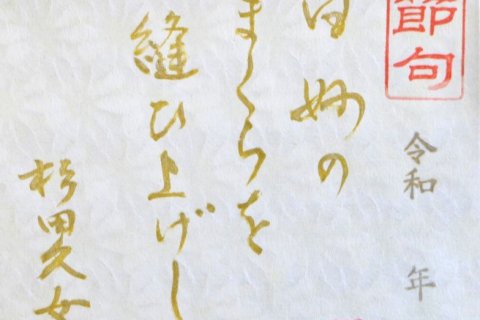 節句
令和　年
白妙の
まくらを
縫ひ上げし
杉田久女